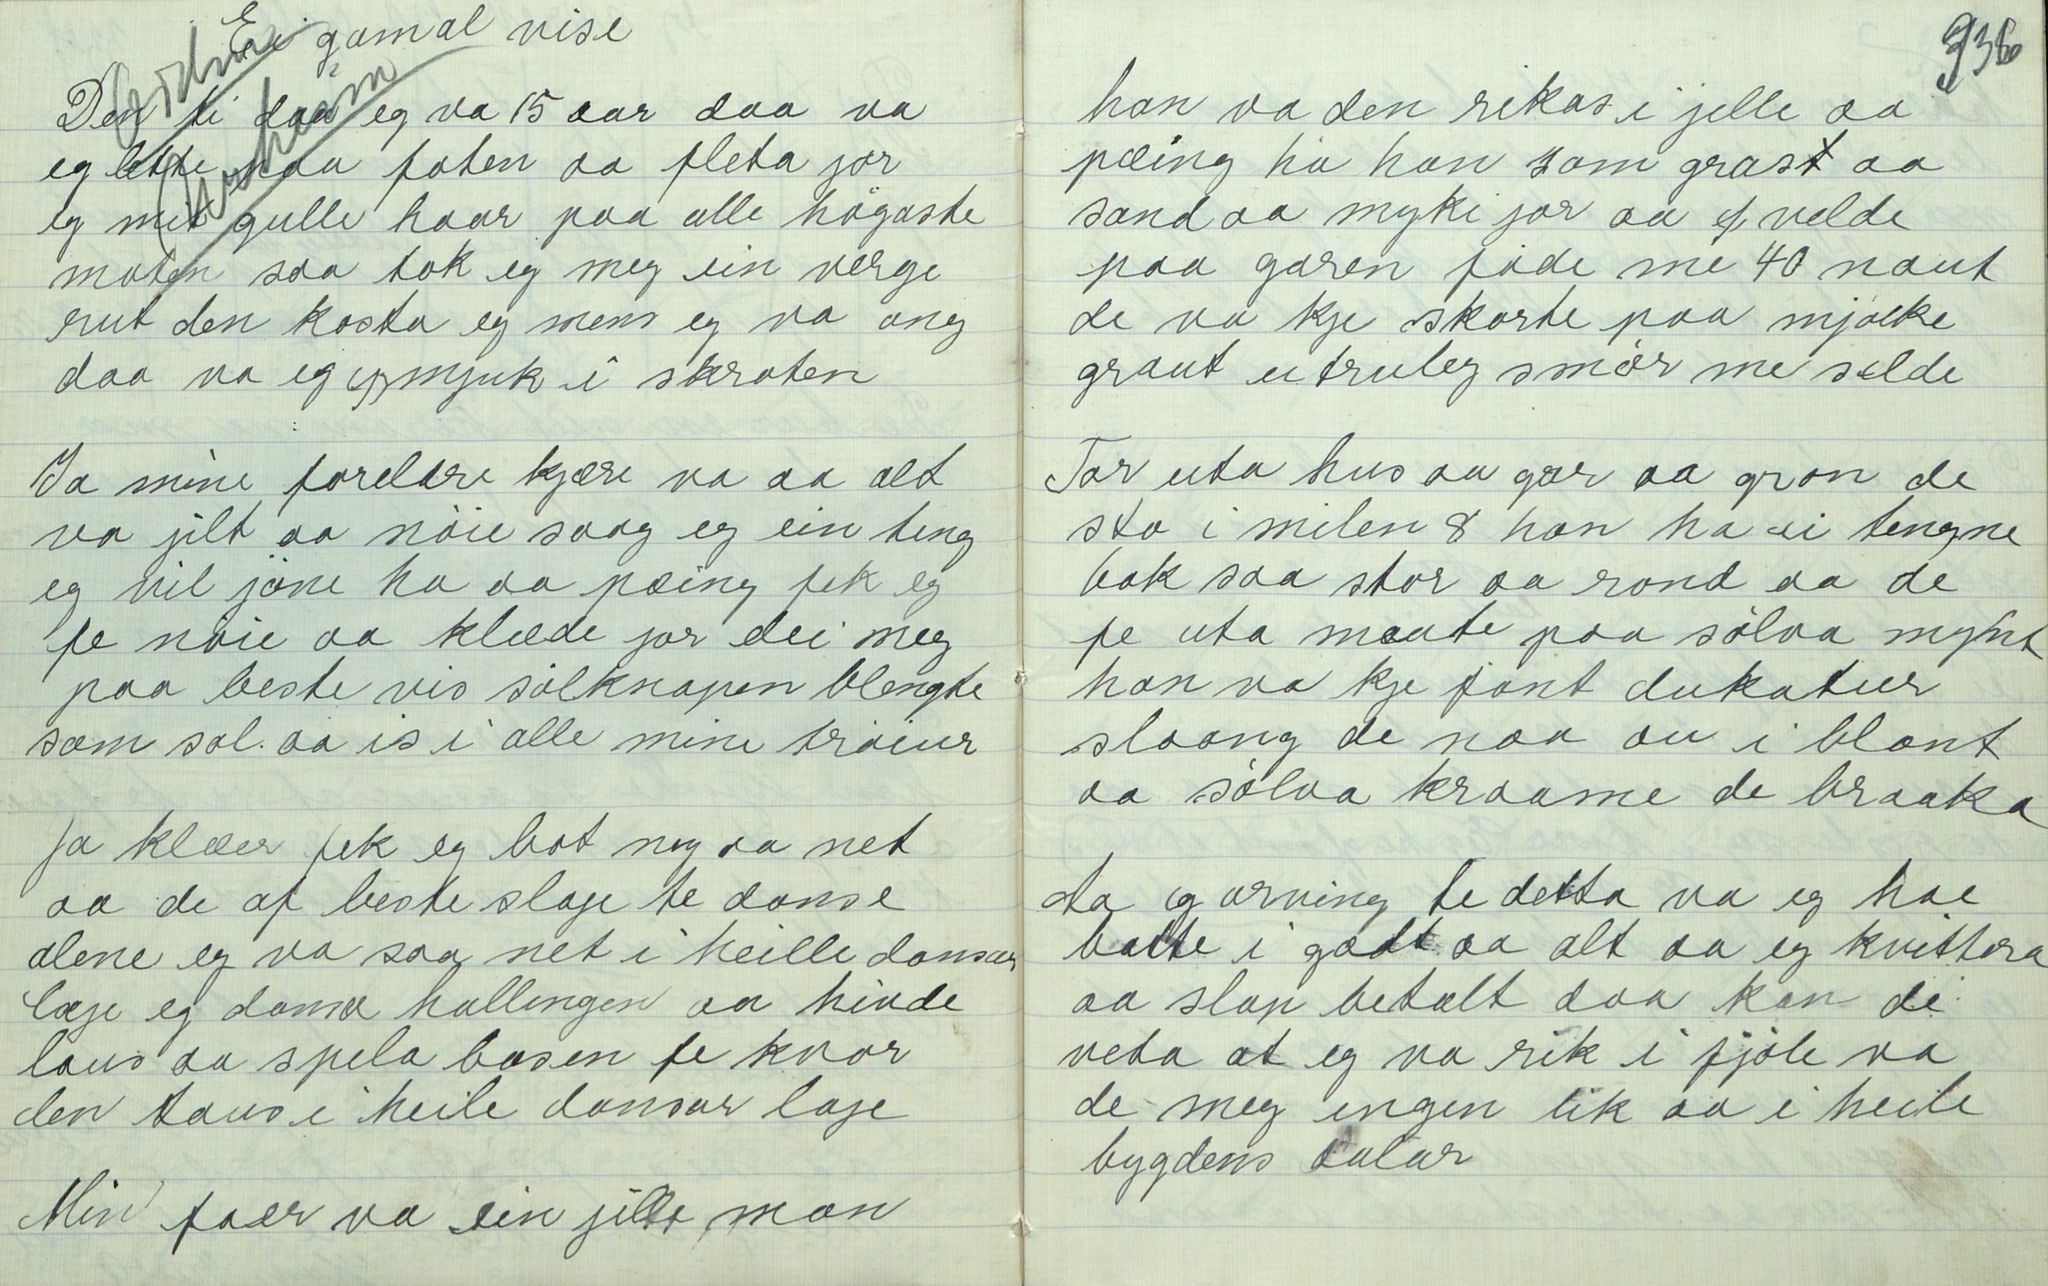 Ei gamal vise
Den ti daa eg va 15 aar daa va
eg lette paa foten aa fleta jor
eg mit gulle haar paa alle högaste
moten saa tok eg meg ein verge
rut den kosta eg mens eg va ong
daa va eg mjuk i skroten
Ja mine forelære kjære va aa alt
va jilt aa nöie saag eg ein teng
eg vil jöne ha aa pæing fek eg
fe nöie aa klæde jor dei meg
paa beste vis sölknapen blengte
som sol aa is i alle mine tröiur
Ja klæer fek eg bot nyg aa net
aa de af beste slaje te danse
alene eg va saa net i heille dansar
laje eg dansa hallingen aa hivde
laus aa spela basen fe kvar
den taus i heile dansar laje
Min faer va ein jilte man
936
han va den rikas i jelle aa
pæing ha han som grast aa
sand aa myki jor aa velde
paa garen föde me 40 naut
de va kje skorte paa mjölke
graut utruleg smör me selde
For uta hus aa gar aa gron de
sto i milen 8 han ha ei tengne
bok saa stor aa rond aa de
fe uta maate paa sölva mynt
han va kje font dukatur
slaang de naa au i blant
aa sölva kraame de braaka
ta eg arving te detta va eg hae
batte i godt aa alt aa eg kvittera
aa slap betalt daa kan di
veta at eg va rik i fjöle va
de meg ingen lik aa i heile
bygdens dalar